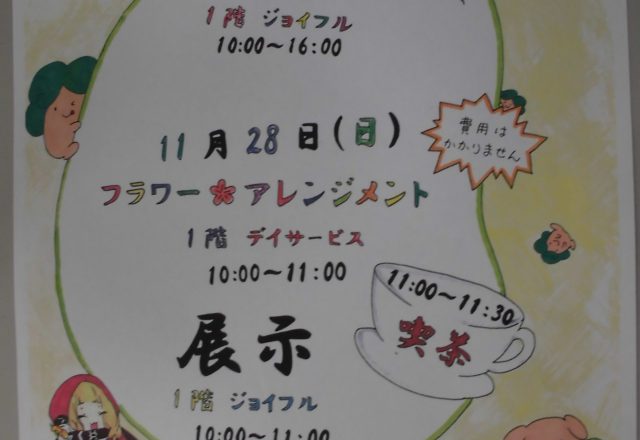 1階 ジョイフル
10:00〜16:00
11月28日(日)
費用は
かかりません
フラワー アレンジメント
1階 デイサービス
10:00〜11:00
11:00〜11:30
喫茶
展示
1階 ジョイフル
10:00〜11:00